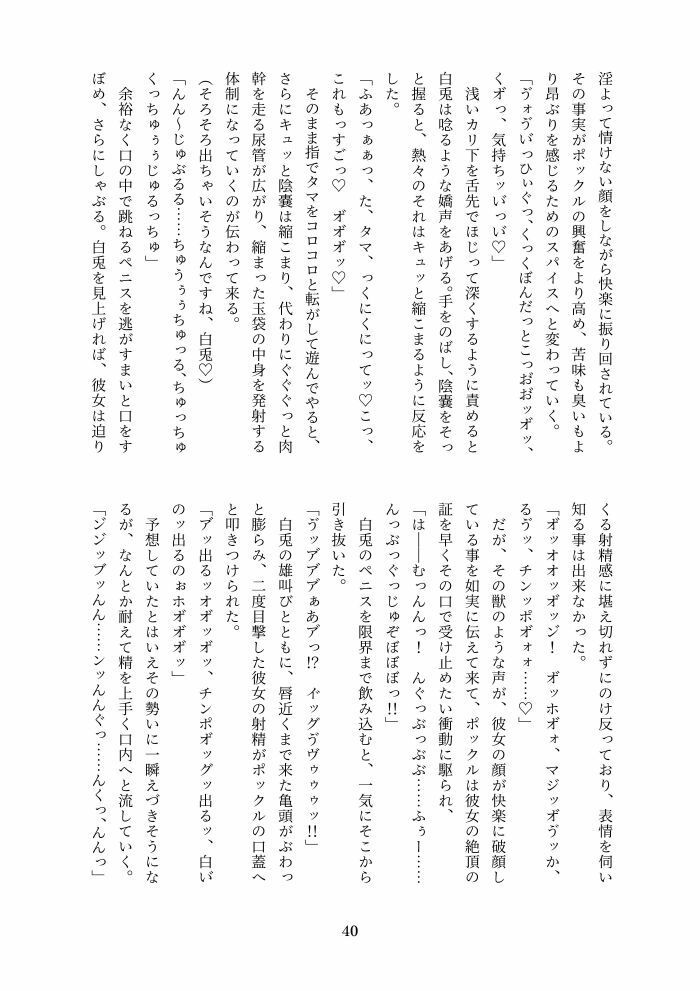 淫よって情けない顔をしながら快楽に振り回されている。
その事実がポックルの興奮をより高め、苦味も臭いもよ
り昂ぶりを感じるためのスパイスへと変わっていく。
「ゔォゔい゙っひぃぐっ、くっくぼんだっとこっお゙お゙ッオ゙ッ、
くずっ、気持ちッい゙っい゙♡」
　浅いカリ下を舌先でほじって深くするように責めると
白兎は唸るような嬌声をあげる。手をのばし、陰嚢をそっ
と握ると、熱々のそれはキュッと縮こまるように反応を
した。
「ふあっぁぁっ、た、タマ、っくにくにってッ♡こっ、
これもっすごっ♡　オ゙オ゙オ゙ッ♡」
　そのまま指でタマをコロコロと転がして遊んでやると、
さらにキュッと陰嚢は縮こまり、代わりにぐぐぐっと肉
幹を走る尿管が広がり、縮まった玉袋の中身を発射する
体制になっていくのが伝わって来る。
（そろそろ出ちゃいそうなんですね、白兎♡）
「んん～じゅぶるる……ちゅうぅぅちゅっる、ちゅっちゅ
くっちゅぅぅじゅるっちゅ」
　余裕なく口の中で跳ねるペニスを逃がすまいと口をす
ぼめ、さらにしゃぶる。白兎を見上げれば、彼女は迫り
くる射精感に堪え切れずにのけ反っており、表情を伺い
知る事は出来なかった。
「オ゙ッオオッオ゙ッジ！　オ゙ッホオ゙ォ、マジッオ゙ゔッか、
るゔッ、チンッポオ゙ォォ……♡」
　だが、その獣のような声が、彼女の顔が快楽に破顔し
ている事を如実に伝えて来て、ポックルは彼女の絶頂の
証を早くその口で受け止めたい衝動に駆られ、
「は――むっんんっ！　んぐっぶっぶぶ……ふぅー……
んっぶっぐっじゅぞぼぼぼっ!!」
　白兎のペニスを限界まで飲み込むと、一気にそこから
引き抜いた。
「ゔッア゙ア゙ア゙ぁあア゙っ!?　イッグゔヴゥゥゥッ!!」
　白兎の雄叫びとともに、唇近くまで来た亀頭がぶわっ
と膨らみ、二度目撃した彼女の射精がポックルの口蓋へ
と叩きつけられた。
「ア゙ッ出るッオオ゙ッオ゙ッ、チンポオ゙ッグッ出るッ、白い゙
のッ出るのぉホオ゙オ゙オ゙ッ」
　予想していたとはいえその勢いに一瞬えづきそうにな
るが、なんとか耐えて精を上手く口内へと流していく。
「ジジッブッんん……ンッんんぐっ……んくっ、んんっ」
40